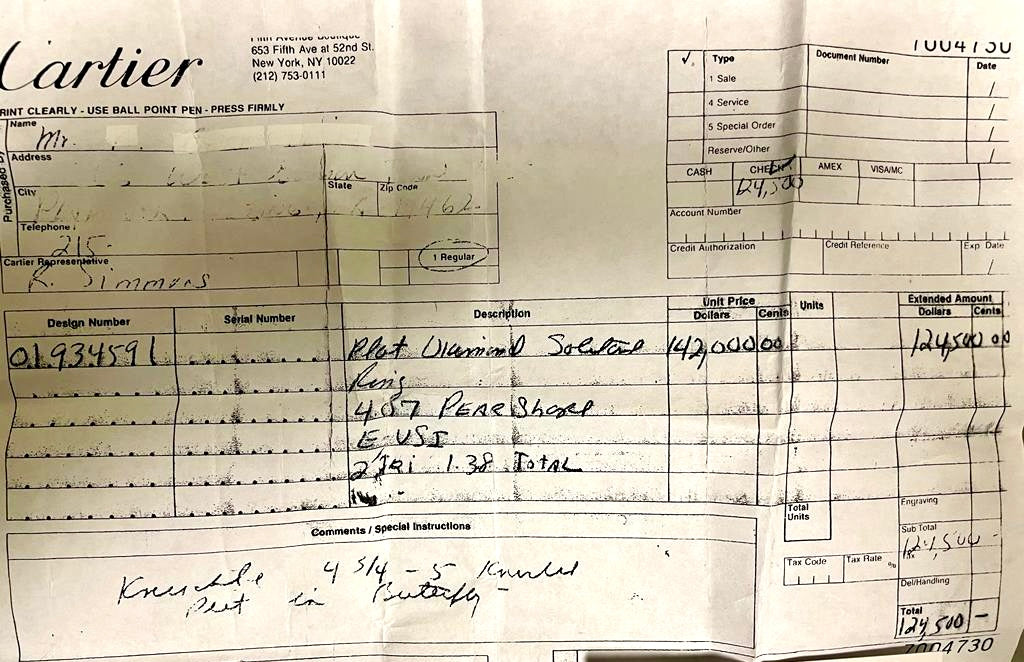 Cartier
Fifth Avenue Boutique
653 Fifth Ave at 52nd St.
New York, NY 10022
(212) 753-0111
RINT CLEARLY - USE BALL POINT PEN - PRESS FIRMLY
Purchased By
Name
Mr.
Address
City
State
Zip Code
Telephone
215-
Cartier Representative
R. Simmons
1 Regular
7004730
Type
Document Number
Date
1 Sale
4 Service
5 Special Order
Reserve/Other
CASH
CHECK
AMEX
VISA/MC
124,500
Account Number
Credit Authorization
Credit Reference
Exp Date
Design Number
Serial Number
Description
Unit Price
Dollars
Cents
Units
Extended Amount
Dollars
Cents
01934591
Plat Diamond Solitaire
142,000 00
124,500 00
Ring
4.07 PEAR Shape
E VSI
2 Tri 1.38 TOTAL
Total Units
Engraving
Sub Total
124,500 -
Tax Code
Tax Rate
%
Tax
Del/Handling
Total
124,500 -
7004730
Comments / Special Instructions
4 3/4 - 5
Put in Butterfly -